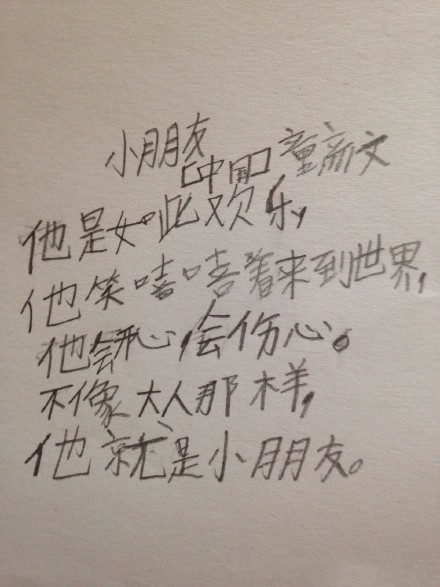 小朋友
[中国] 童新文
他是如此欢乐,
他笑嘻嘻着来到世界,
他会开心,会伤心。
不像大人那样,
他就是小朋友。